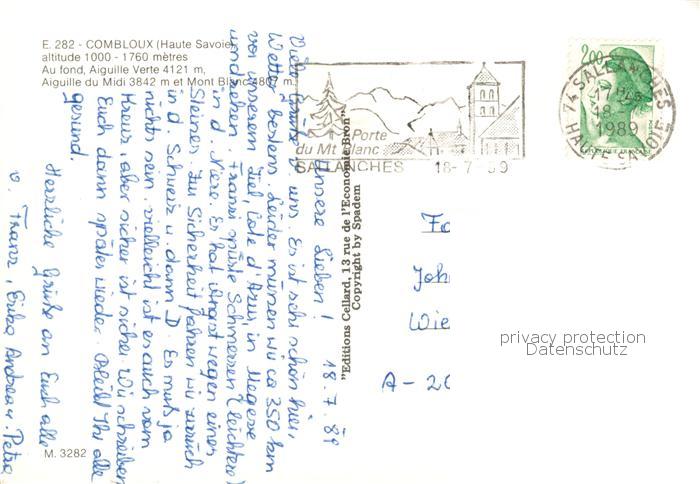 E. 282 - COMBLOUX (Haute Savoie)
altitude 1000 - 1760 mètres
Au fond, Aiguille Verte 4121 m,
Aiguille du Midi 3842 m et Mont Blanc 4807 m.
Porte
du Mt Blanc
SALLANCHES 18-7-89
74 SALLANCHES
18-7
1989
HAUTE SAVOIE
2,00
"Editions Cellard, 13 rue de l'Economie Bron"
Copyright by Spadem
18.7.89
Unsere Lieben!
Viele Grüße v. uns. Es ist sehr schön hier,
Wetter bestens. Leider müssen wir ca 350 km
vor unserem Ziel, Cote d'Azur, in Megeve
umdrehen. Franzi spürte Schmerzen (leichtere)
in d. Niere. Er hat Angst wegen eines
Steines. Zur Sicherheit fahren wir zurück
in d. Schweiz u. dann D. Es muß ja
nichts sein, vielleicht ist es auch vom
Kreuz, aber sicher ist sicher. Wir schreiben
Euch dann später wieder. Bleibt Ihr alle
gesund.
Herzliche Grüße an Euch alle
v. Franz, Erika, Andrea u. Petra
Fa
Joh
Wie
A-20
privacy protection
Datenschutz
M. 3282